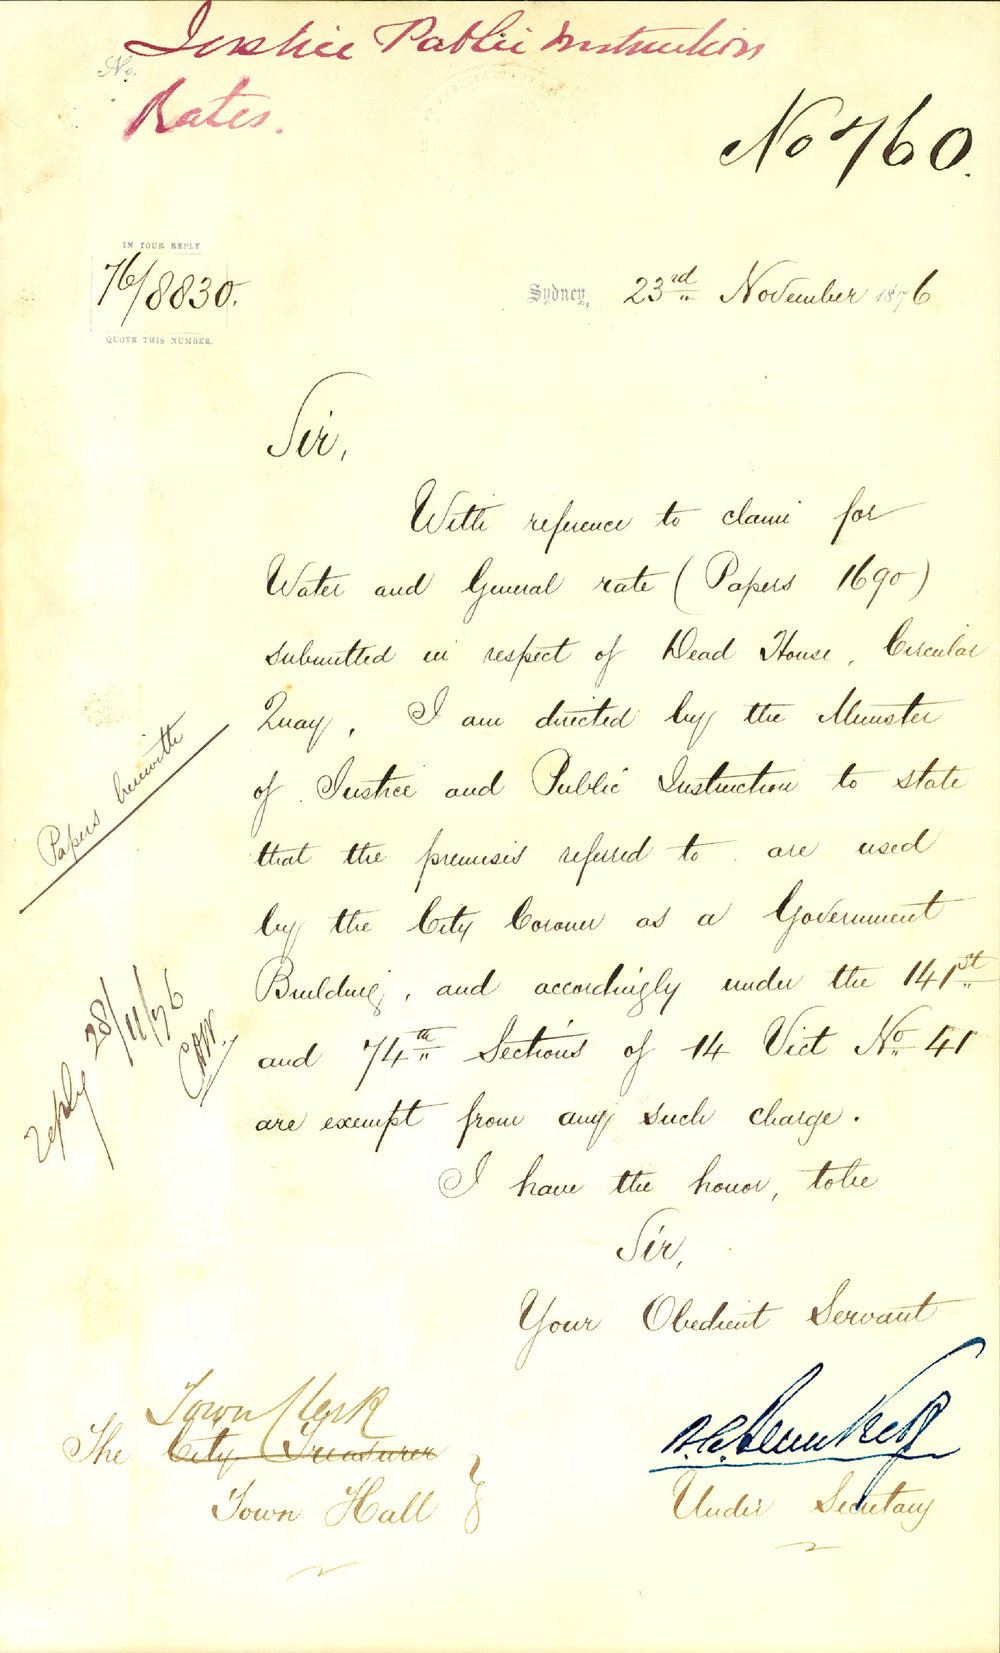 Justice Public Instruction
No.
Rates.
No 760.
IN YOUR REPLY
76/8830.
QUOTE THIS NUMBER.
Sydney, 23rd November 1876
Sir,
With reference to claim for
Water and General rate (Papers 1690)
submitted in respect of Dead House, Circular
Quay, I am directed by the Minister
of Justice and Public Instruction to state
that the premises referred to are used
by the City Coroner as a Government
Building, and accordingly under the 141st
and 74th Sections of 14 Vict No 41
are exempt from any such charge.
I have the honor, to be
Sir,
Your Obedient Servant
Under Secretary
Town Clerk
The City Treasurer
Town Hall
Papers herewith
reply 28/11/76